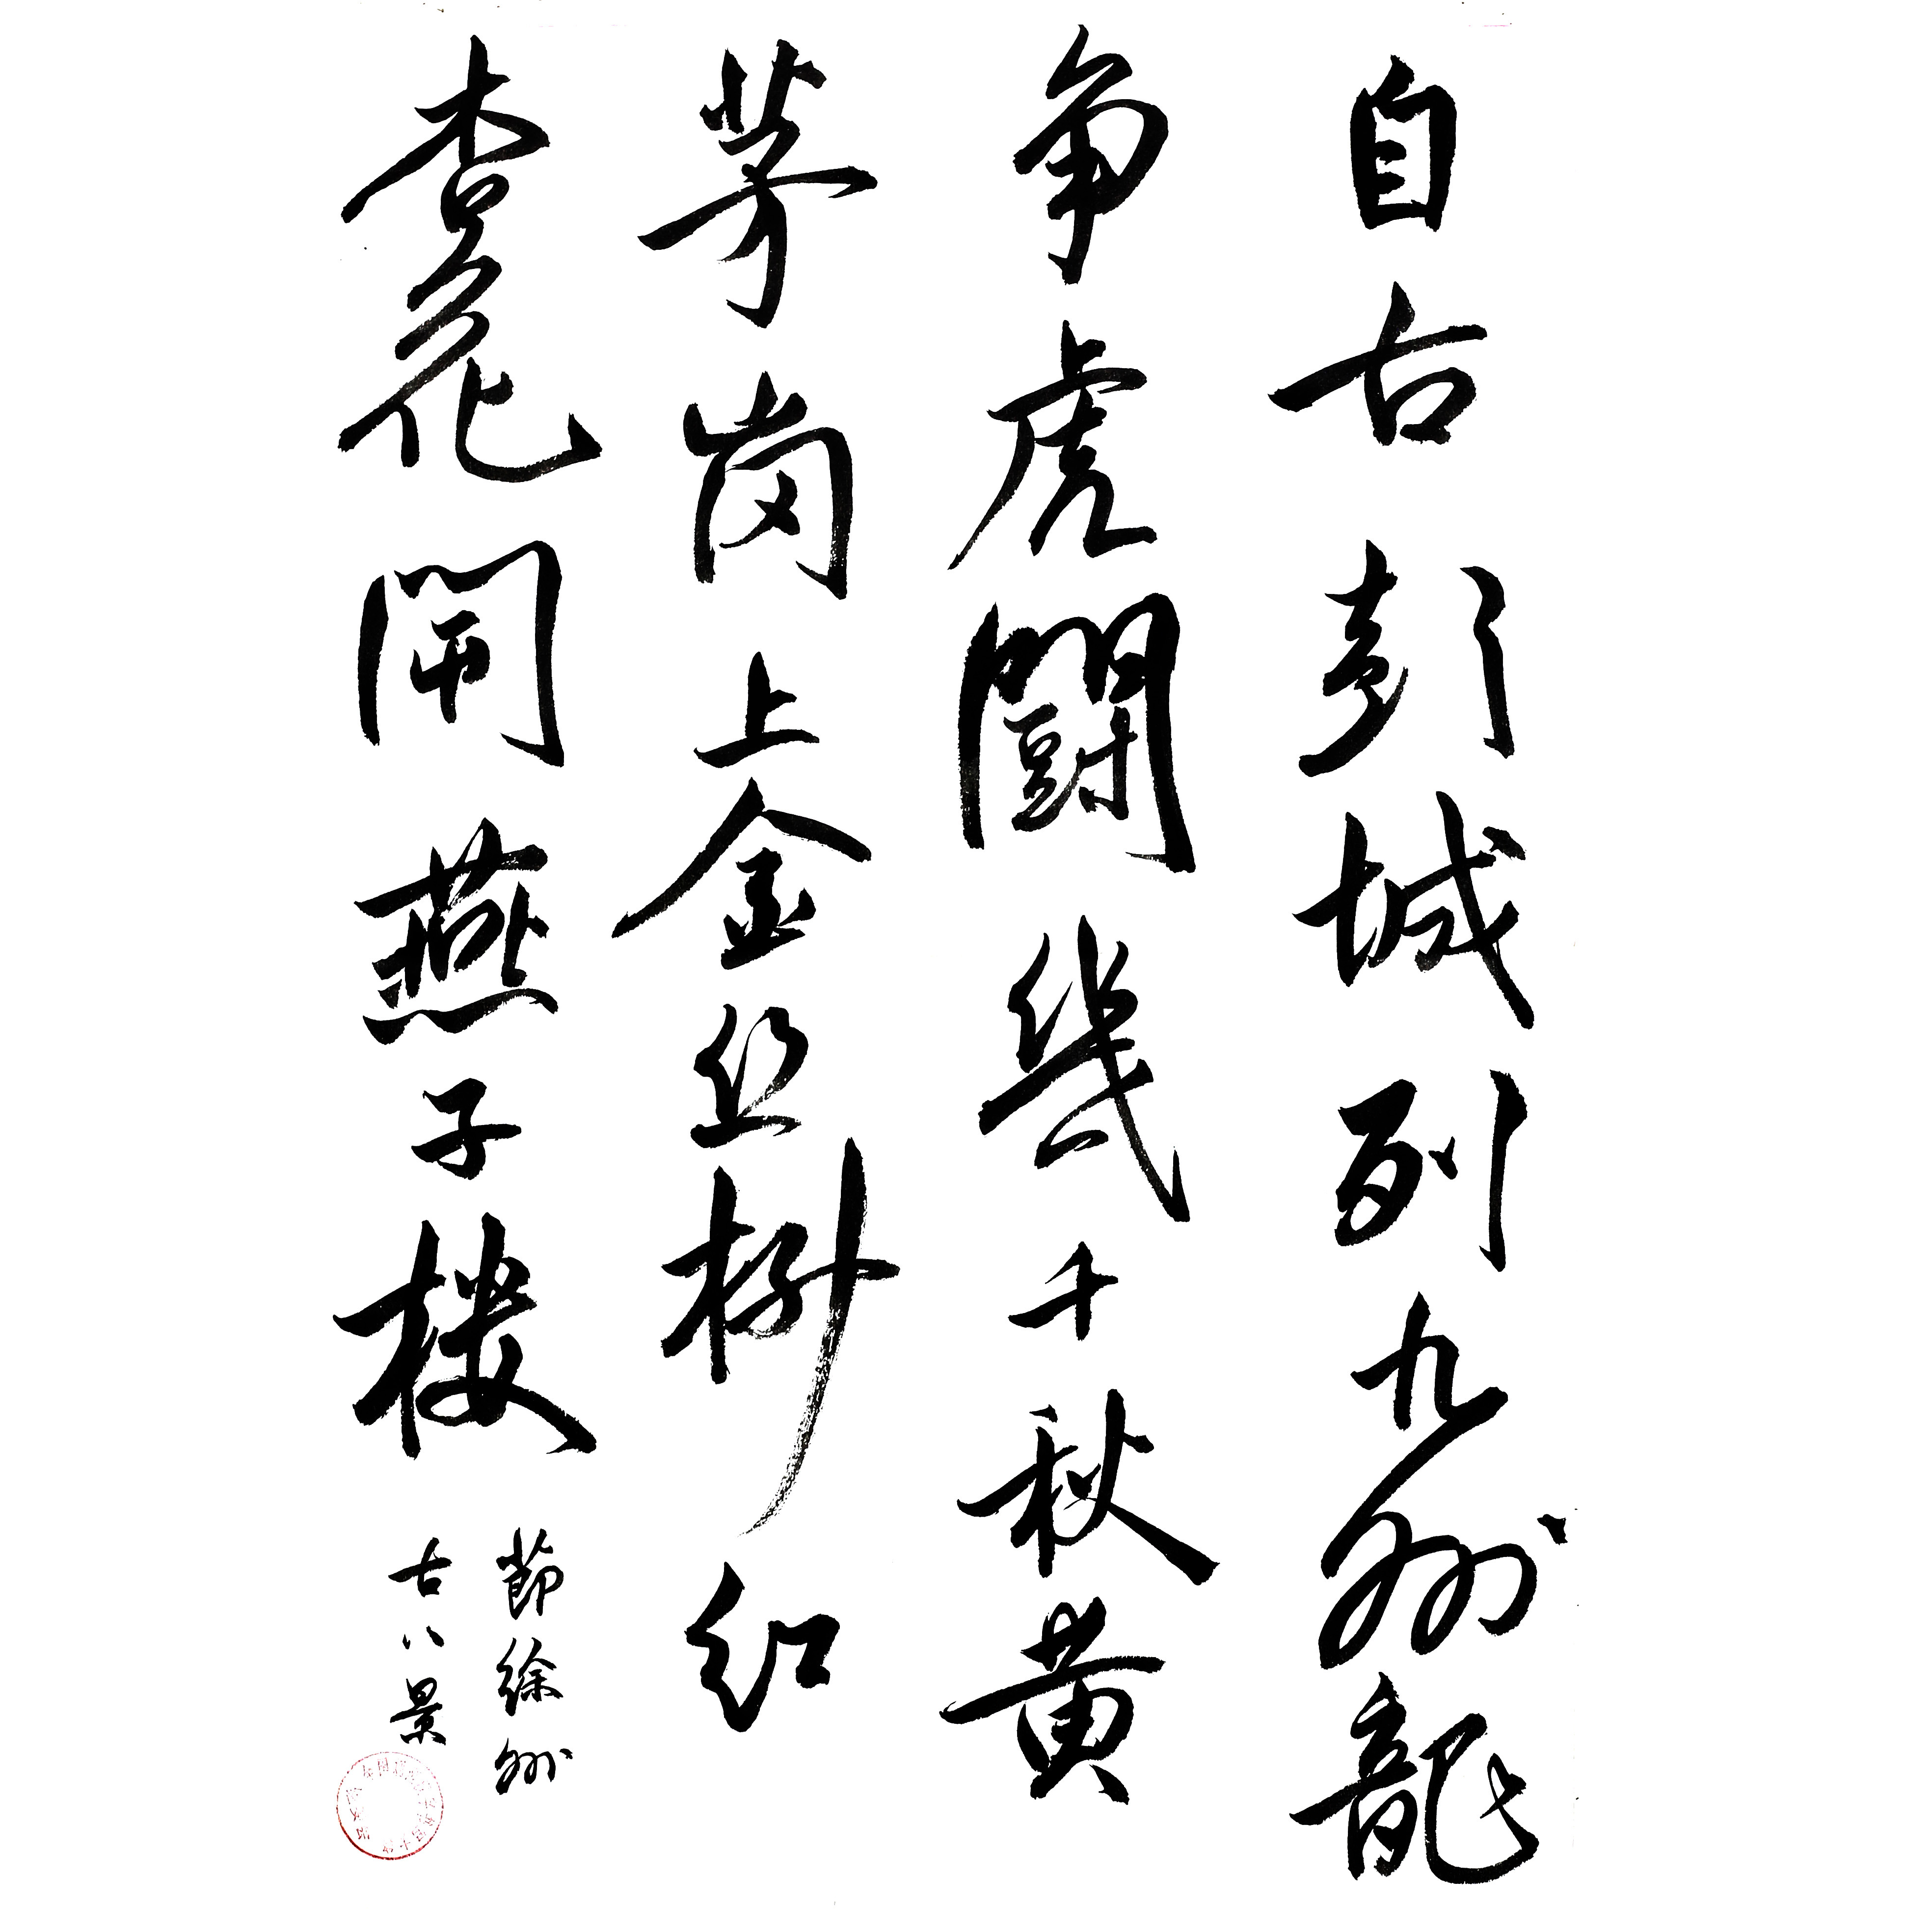 自古彭城列九州龍
争虎鬪幾千秋黄
茅岗上金丘樹红
杏花開燕子樓
節徐州
古八景